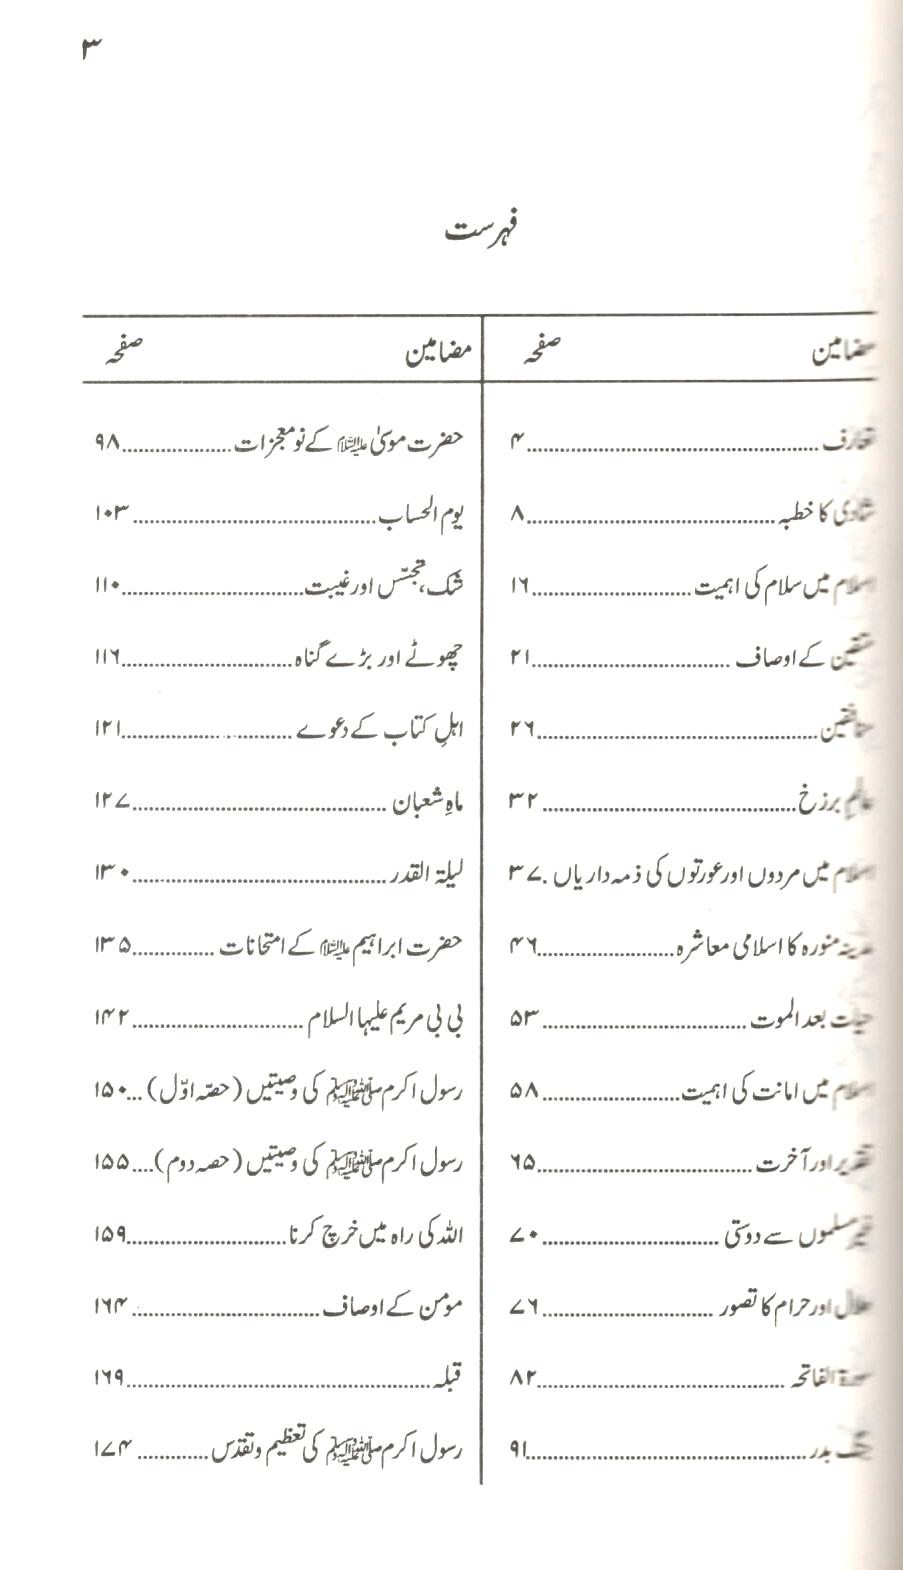 ۳
فہرست
مضامین صفحہ
تعارف ........ ۴
شادی کا خطبہ ........ ۸
اسلام میں سلام کی اہمیت ........ ۱۶
متقین کے اوصاف ........ ۲۱
منافقین ........ ۲۶
عالمِ برزخ ........ ۳۲
اسلام میں مردوں اور عورتوں کی ذمہ داریاں . ۳۷
مدینہ منورہ کا اسلامی معاشرہ ........ ۴۶
حیات بعد الموت ........ ۵۳
اسلام میں امانت کی اہمیت ........ ۵۸
تقدیر اور آخرت ........ ۶۵
غیر مسلموں سے دوستی ........ ۷۰
حلال اور حرام کا تصور ........ ۷۶
سورۃ الفاتحہ ........ ۸۲
جنگ بدر ........ ۹۱
مضامین صفحہ
حضرت موسیٰ علیہ السلام کے نو معجزات ........ ۹۸
یوم الحساب ........ ۱۰۳
شک، تجسّس اور غیبت ........ ۱۱۰
چھوٹے اور بڑے گناہ ........ ۱۱۶
اہلِ کتاب کے دعوے ........ ۱۲۱
ماہِ شعبان ........ ۱۲۷
لیلۃ القدر ........ ۱۳۰
حضرت ابراہیم علیہ السلام کے امتحانات ........ ۱۳۵
بی بی مریم علیہا السلام ........ ۱۴۲
رسول اکرم ﷺ کی وصیتیں (حصّہ اوّل) ... ۱۵۰
رسول اکرم ﷺ کی وصیتیں (حصہ دوم) .... ۱۵۵
اللہ کی راہ میں خرچ کرنا ........ ۱۵۹
مومن کے اوصاف ........ ۱۶۴
قبلہ ........ ۱۶۹
رسول اکرم ﷺ کی تعظیم و تقدّس ........ ۱۷۴